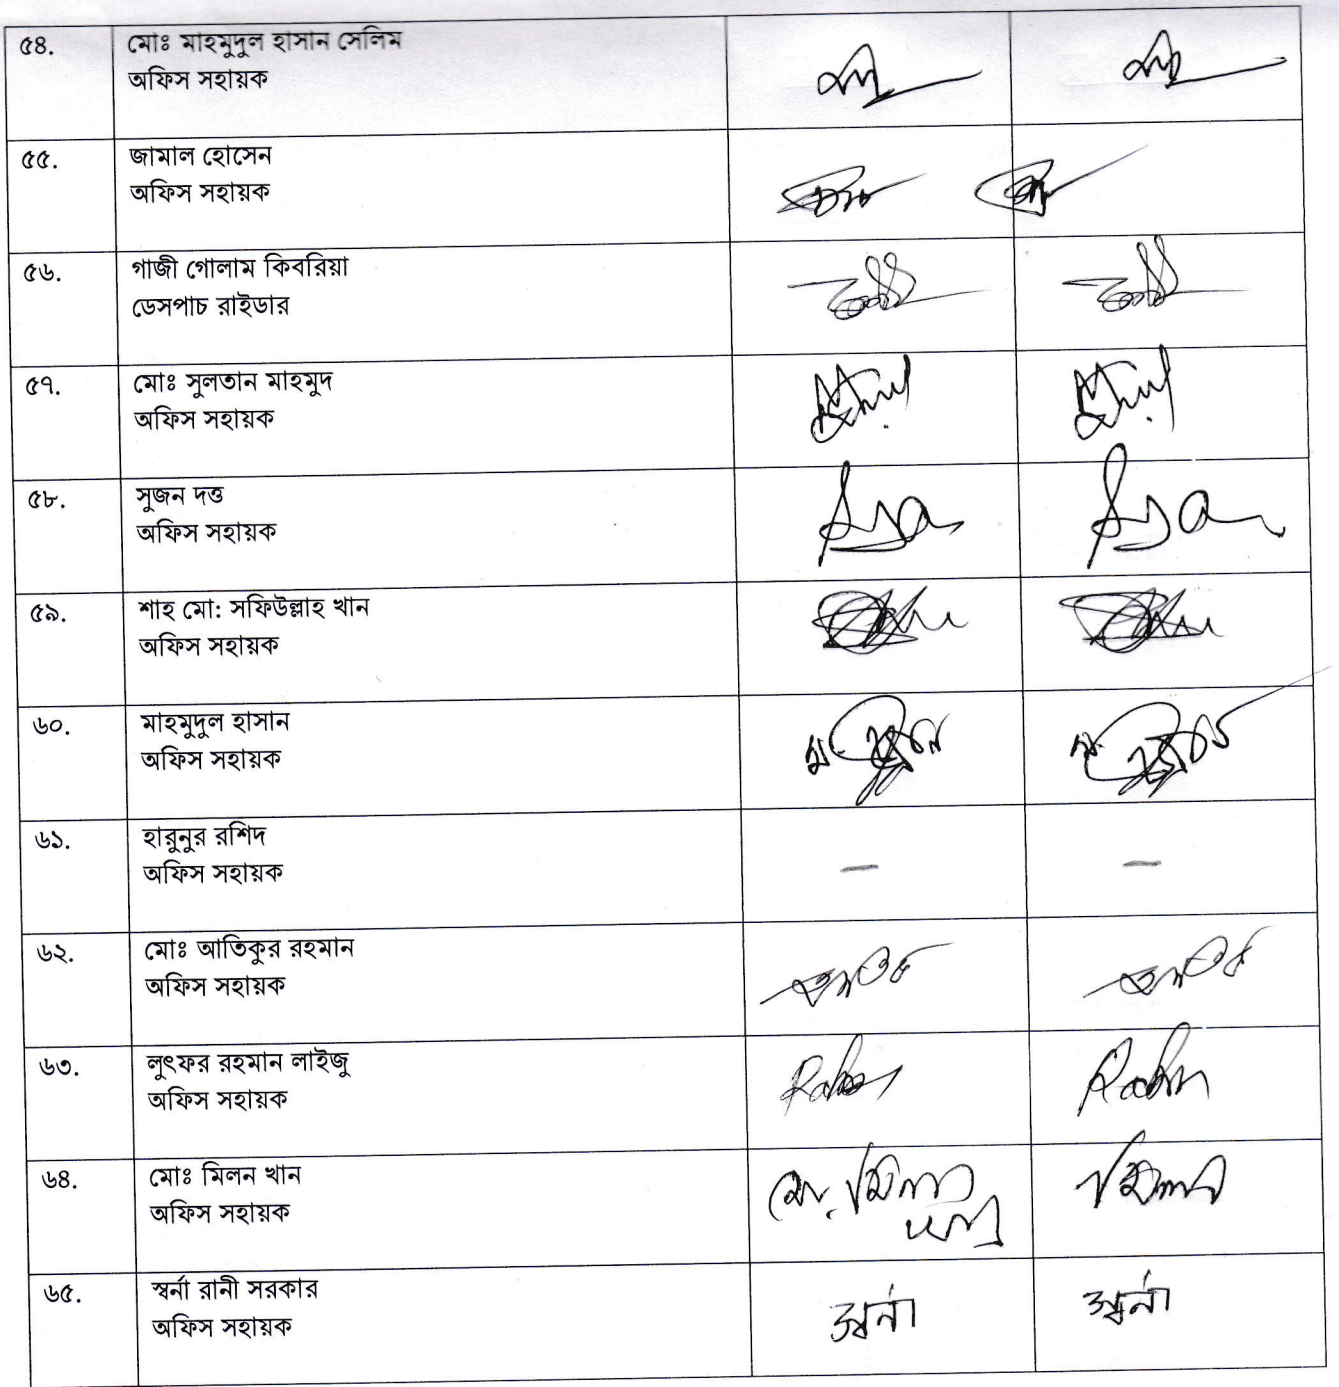 ৫৪. মোঃ মাহমুদুল হাসান সেলিম
অফিস সহায়ক
৫৫. জামাল হোসেন
অফিস সহায়ক
৫৬. গাজী গোলাম কিবরিয়া
ডেসপাচ রাইডার
৫৭. মোঃ সুলতান মাহমুদ
অফিস সহায়ক
৫৮. সুজন দত্ত
অফিস সহায়ক
৫৯. শাহ মো: সফিউল্লাহ খান
অফিস সহায়ক
৬০. মাহমুদুল হাসান
অফিস সহায়ক
৬১. হারুনুর রশিদ — —
অফিস সহায়ক
৬২. মোঃ আতিকুর রহমান
অফিস সহায়ক
৬৩. লুৎফর রহমান লাইজু
অফিস সহায়ক
৬৪. মোঃ মিলন খান
অফিস সহায়ক
৬৫. স্বর্না রানী সরকার স্বর্না স্বর্না
অফিস সহায়ক